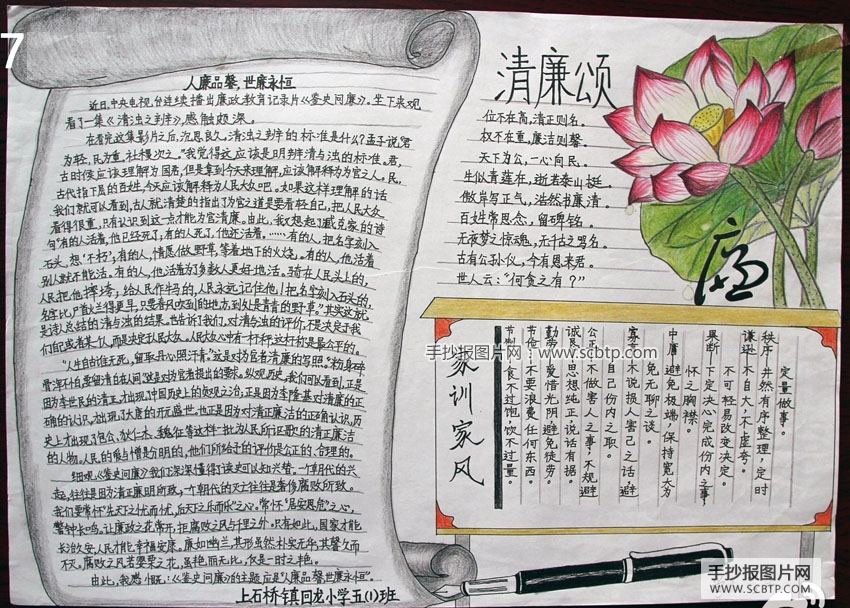 7
人廉品馨,世廉永恒
近日,中央电视台连续播出廉政教育记录片《鉴史问廉》。坐下来观
看了一集《清浊之判》,感触颇深。
在看完这集影片之后,沉思良久。清浊之判的标准是什么?孟子说"君
为轻,民为重,社稷次之。"我觉得这应该是明辨清与浊的标准。君,
古时候应该理解为国君,但是拿到今天来理解,应该解释为官之人。民,
古代指下层的百姓,今天应该解释为人民大众吧。如果这样理解的话
我们就可以看到,古人就清楚的指出了为官之道是要看轻自己,把人民大众
看得很重,只有认识到这一点才能为官清廉。由此,我又想起了臧克家的诗
句"有的人活着,他已经死了,有的人死了,他还活着。……有的人,把名字刻入
石头,想"不朽",有的人,情愿做野草,等着地下的火烧。有的人,他活着
别人就不能活。有的人,他活着为了多数人更好地活。骑在人民头上的,
人民把他摔垮,给人民作牛马的,人民永远记住他!把名字刻入石头的,
名字比尸首烂得更早,只要春风吹到的地方,到处是青青的野草。"其实这就
是诗人总结的清与浊的结果。也告诉了我们,对清与浊的评价,不是决定于我
们自己或者某个人,而是决定于人民大众。人民大众心中有一杆秤,这杆秤是最公平的。
"人生自古谁无死,留取丹心照汗青。"这是对为官者清廉的写照。"粉身碎
骨浑不怕,要留清白在人间"这是对为官者提出的要求。纵观历史,我们可以看到,正是
因为李世民的清正,才出现了中国历史上的贞观之治,正是因为李隆基对清廉的正
确的认识,才出现了大唐的开元盛世,也正是因为对清正廉洁的正确认识,历
史上才出现了包公、狄仁杰、魏征等这样一批为人民所讴歌的清正廉洁
的人物。人民的爱与憎是分明的,他们所给予的评价是公正的,合理的。
细观《鉴史问廉》我们深深懂得了读史可以知兴替。一个朝代的兴
起,往往是因为清正廉明所致,一个朝代的灭亡往往是奢侈腐败所致。
我们要常怀"先天下之忧而忧,后天下之乐而乐"之心。常怀"居安思危"之心,
警钟长鸣。让廉政之花常开,拒腐败之风于千里之外。只有如此,国家才能
长治久安,人民才能幸福安康。廉如幽兰,其形虽然朴实无华,其馨久而
不灭。腐败之风若罂粟之花,虽艳,而无比,仅是一时之艳。
由此,我感慨:《鉴史问廉》的主题应是"人廉品馨,世廉永恒"。
上石桥镇回龙小学五(1)班
清廉颂
位不在高,清正则名。
权不在重,廉洁则馨。
天下为公,一心向民。
生似青莲在,逝若泰山挺。
傲岸写正气,浩然书廉清。
百姓常思念,留碑铭。
无夜梦之惊魂,无千古之骂名。
古有公孙仪,今有恩来君。
世人云:"何贪之有?"
廉
定量做事。
秩序:井然有序整理,定时
谦逊:不自大,不虚夸。
不可轻易改变决定。
果断:下定决心完成份内之事,
怀之胸襟。
中庸:避免极端,保持宽大为
免无聊之谈。
寡言:不说损人害己之话,避
自己份内之职。
公正:不做害人之事,不规避
诚恳:思想纯正,说话有据。
勤劳:爱惜光阴,避免徒劳。
节俭:不要浪费任何东西。
节制:食不过饱,饮不过量。
家训家风
手抄报图片网:www.scbtp.com
手抄报图片网
WWW.SCBTP.COM